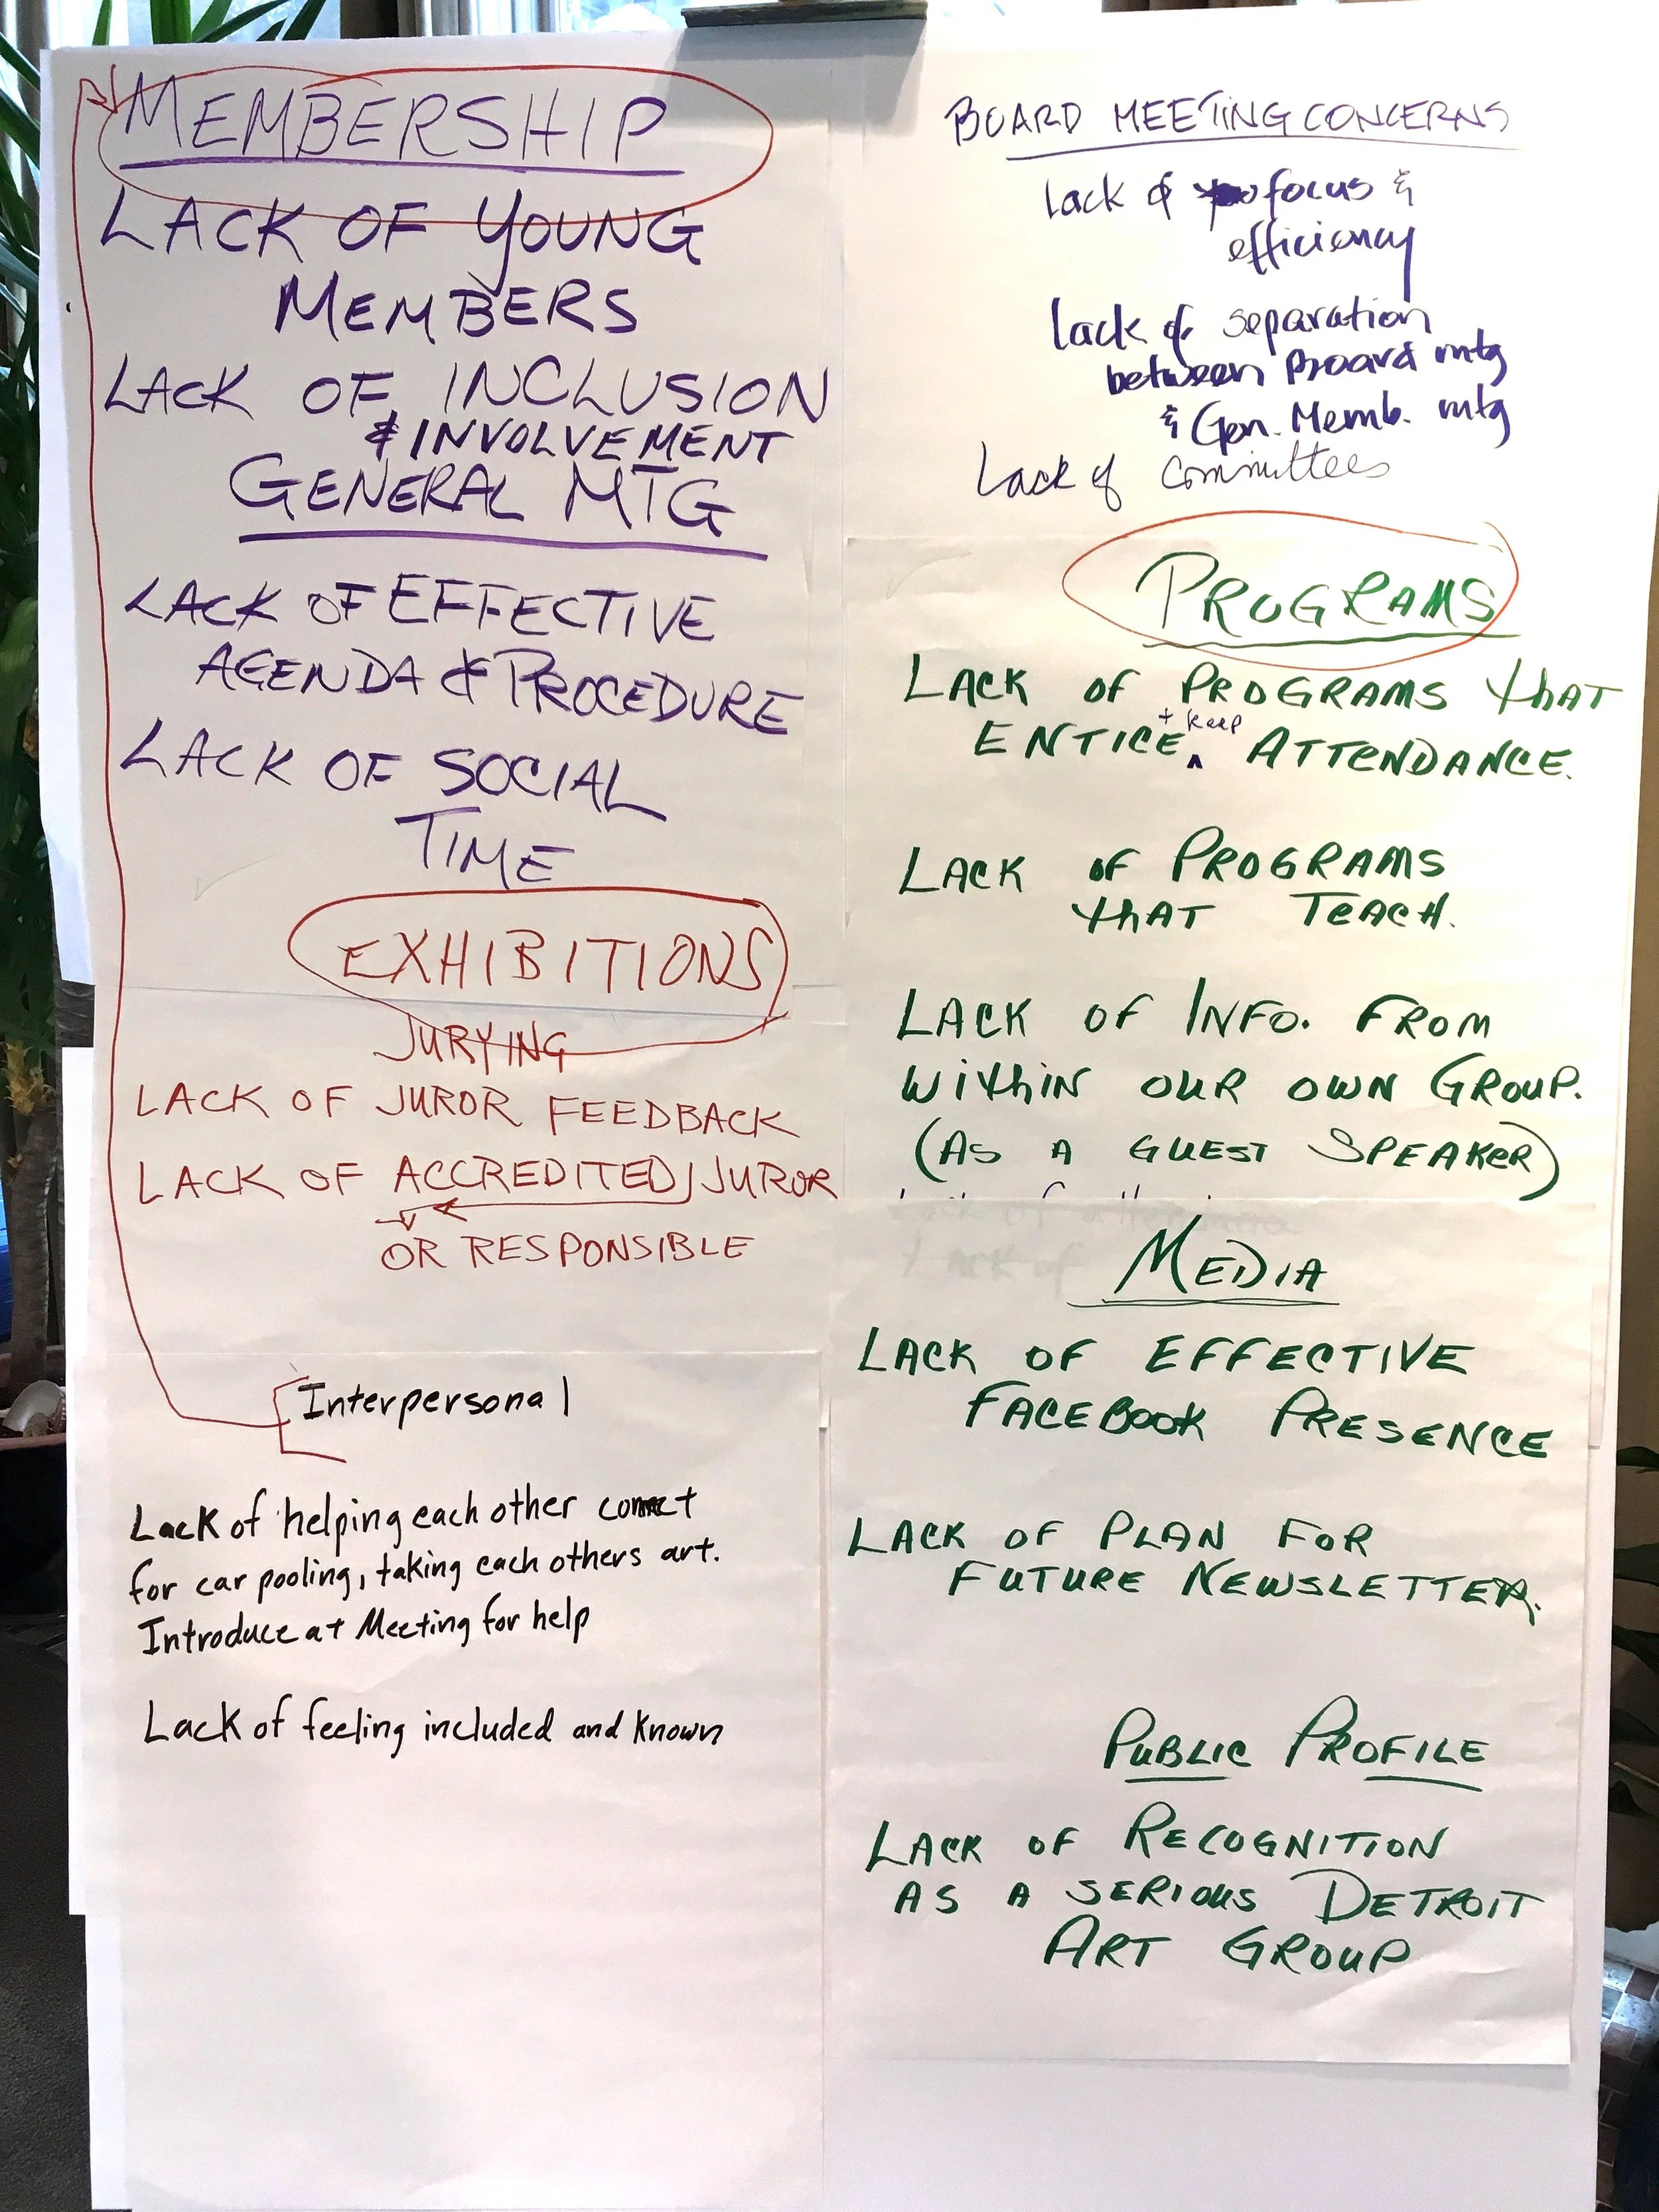 MEMBERSHIP
LACK OF YOUNG
MEMBERS
LACK OF INCLUSION
& INVOLVEMENT
GENERAL MTG
LACK OF EFFECTIVE
AGENDA & PROCEDURE
LACK OF SOCIAL
TIME
EXHIBITIONS
JURYING
LACK OF JUROR FEEDBACK
LACK OF ACCREDITED JUROR
OR RESPONSIBLE
Interpersonal
Lack of helping each other connect
for car pooling, taking each others art.
Introduce at Meeting for help
Lack of feeling included and known
BOARD MEETING CONCERNS
Lack of focus &
efficiency
Lack of separation
between Board mtg
& Gen. Memb. mtg
Lack of committees
PROGRAMS
LACK OF PROGRAMS that
+ keep
ENTICE ATTENDANCE.
LACK OF PROGRAMS
that TEACH.
LACK OF INFO. FROM
within our own Group.
(AS A GUEST SPEAKER)
MEDIA
LACK OF EFFECTIVE
FACEBOOK PRESENCE
LACK OF PLAN FOR
FUTURE NEWSLETTER.
PUBLIC PROFILE
LACK OF RECOGNITION
AS A SERIOUS DETROIT
ART GROUP